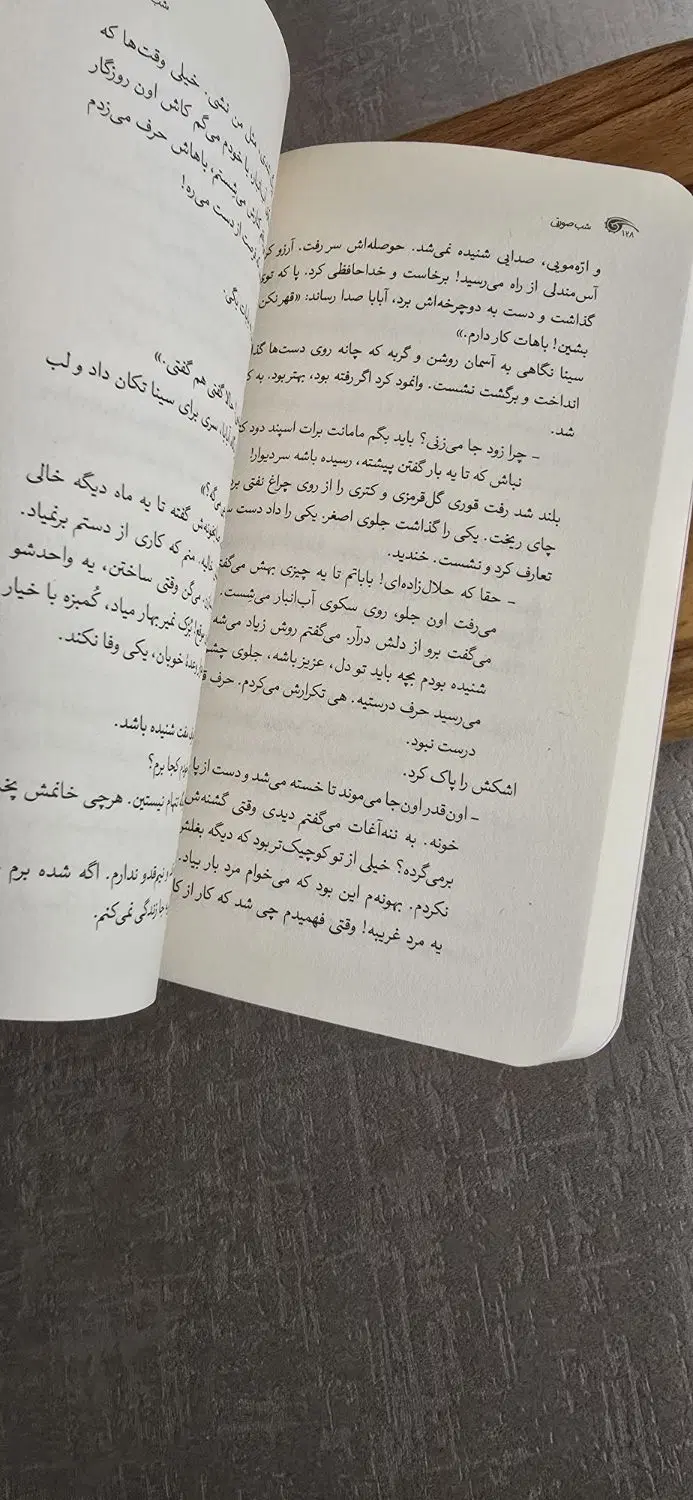 ۱۲۸ شب صورتی
و اژه‌مویی، صدایی شنیده نمی‌شد. حوصله‌اش سر رفت. آرزو
آس‌مندلی از راه می‌رسید! برخاست و خداحافظی کرد. پا که توی
گذاشت و دست به دوچرخه‌اش برد، آبابا صدا رساند: «قهر نکن
بشین! باهات کار دارم.»
سینا نگاهی به آسمان روشن و گربه که چانه روی دست‌ها
انداخت و برگشت نشست. وانمود کرد اگر رفته بود، بهتر بود. به
شد.
– چرا زود جا می‌زنی؟ باید بگم مامانت برات اسپند دود
نباش که تا یه بار گفتن پیشته، رسیده باشه سر دیوار!
بلند شد رفت قوری گل‌قرمزی و کتری را از روی چراغ نفتی
چای ریخت. یکی را گذاشت جلوی اصغر. یکی را داد دست
تعارف کرد و نشست. خندید.
– حقا که حلال‌زاده‌ای! باباتم تا یه چیزی بهش
می‌رفت اون جلو، روی سکوی آب‌انبار می‌شِست.
می‌گفت برو از دلش درآر. می‌گفتم روش زیاد می‌شه
شنیده بودم بچه باید تو دل، عزیز باشه، جلوی
می‌رسید حرف درستیه. هی تکرارش می‌کردم. حرف
درست نبود.
اشکش را پاک کرد.
– اون‌قدر اون‌جا می‌موند تا خسته می‌شد و دست از پا
خونه. به ننه‌آغات می‌گفتم دیدی وقتی گشنه‌ش
برمی‌گرده؟ خیلی از تو کوچیک‌تر بود که دیگه
نکردم. بهونه‌م این بود که می‌خوام مرد بار بیاد.
یه مرد غریبه! وقتی فهمیدم چی شد که کار از
مثل من نشی. خیلی وقت‌ها که
با خودم می‌گم کاش اون روزگار
می‌شِستم، باهاش حرف می‌زدم
از دست می‌ره!
یگی.
گفتی هم گفتی.»
سری برای سینا تکان داد و لب
گفته تا یه ماه دیگه خالی
منم که کاری از دستم برنمیاد.
می‌گن وقتی ساختن، یه واحدشو
نمیر بهار میاد، کُمبزه با خیار
خوبان، یکی وفا نکند.
شنیده باشد.
کجا برم؟
نیستین. هرچی خانمش
ندارم. اگه شده برم
زندگی نمی‌کنم.